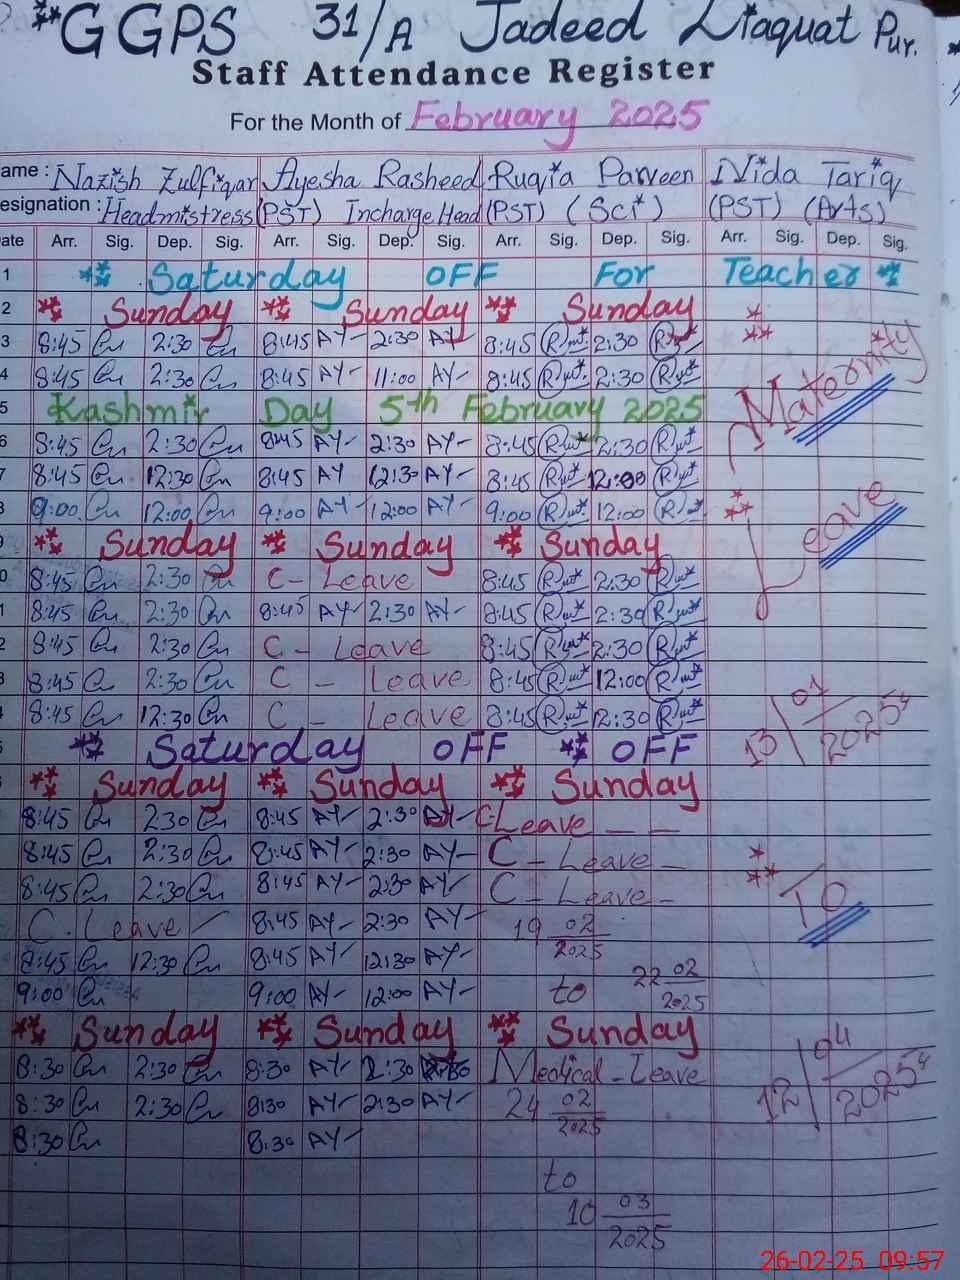 **GGPS 31/A Jadeed Liaquat Pur.
Staff Attendance Register
For the Month of February 2025
ame : Nazish Zulfiqar Ayesha Rasheed Ruqia Parveen Nida Tariq
esignation : Headmistress (PST) Incharge Head (PST) (Sci) (PST) (Arts)
ate Arr. Sig. Dep. Sig. Arr. Sig. Dep. Sig. Arr. Sig. Dep. Sig. Arr. Sig. Dep. Sig.
1 Saturday OFF For Teacher
2 Sunday Sunday Sunday
3 8:45 2:30 8:45 AY 2:30 AY 8:45 2:30
4 8:45 2:30 8:45 AY 11:00 AY 8:45 2:30
5 Kashmir Day 5th February 2025
6 8:45 2:30 8:45 AY 2:30 AY 8:45 2:30
7 8:45 12:30 8:45 AY 12:30 AY 8:45 12:00
8 9:00 12:00 9:00 AY 12:00 AY 9:00 12:00
9 Sunday Sunday Sunday
0 8:45 2:30 C- Leave 8:45 2:30
1 8:45 2:30 8:45 AY 2:30 AY 8:45 2:30
2 8:45 2:30 C- Leave 8:45 2:30
3 8:45 2:30 C - Leave 8:45 12:00
4 8:45 12:30 C - Leave 8:45 12:30
5 Saturday OFF OFF
6 Sunday Sunday Sunday
8:45 2:30 8:45 AY 2:30 AY C-Leave
8:45 2:30 8:45 AY 2:30 AY C-Leave
8:45 2:30 8:45 AY 2:30 AY C-Leave
C. Leave 8:45 AY 2:30 AY 19 02 2025
8:45 12:30 8:45 AY 12:30 AY
9:00 9:00 AY 12:00 AY to 22 02 2025
Sunday Sunday Sunday
8:30 2:30 8:30 AY 2:30 Medical-Leave
8:30 2:30 8:30 AY 2:30 AY 24 02 2025
8:30 8:30 AY
to
10 03 2025
Maternity
Leave
13 01 2025
To
12 04 2025
26-02-25 09:57